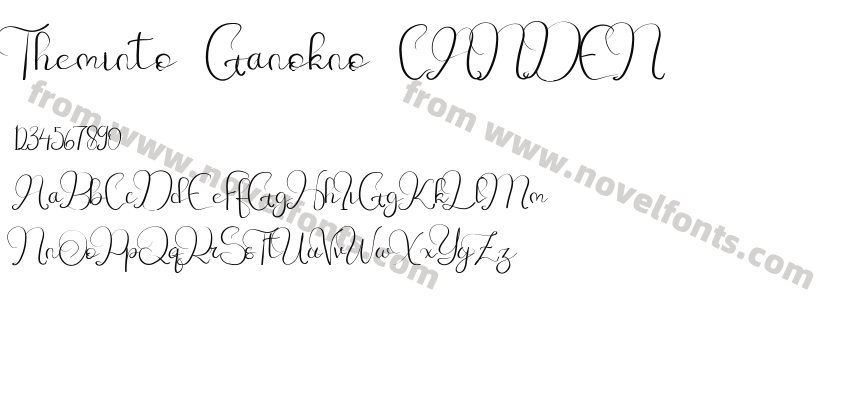 Theminto Ganokno CANDEN
1234567890
AaBbCcDdEeFfGgHhIiGgKkLlMm
NnOoPpQqRrSsTtUuVvWwXxYyZz
from www.novelfonts.com
from www.novelfonts.com